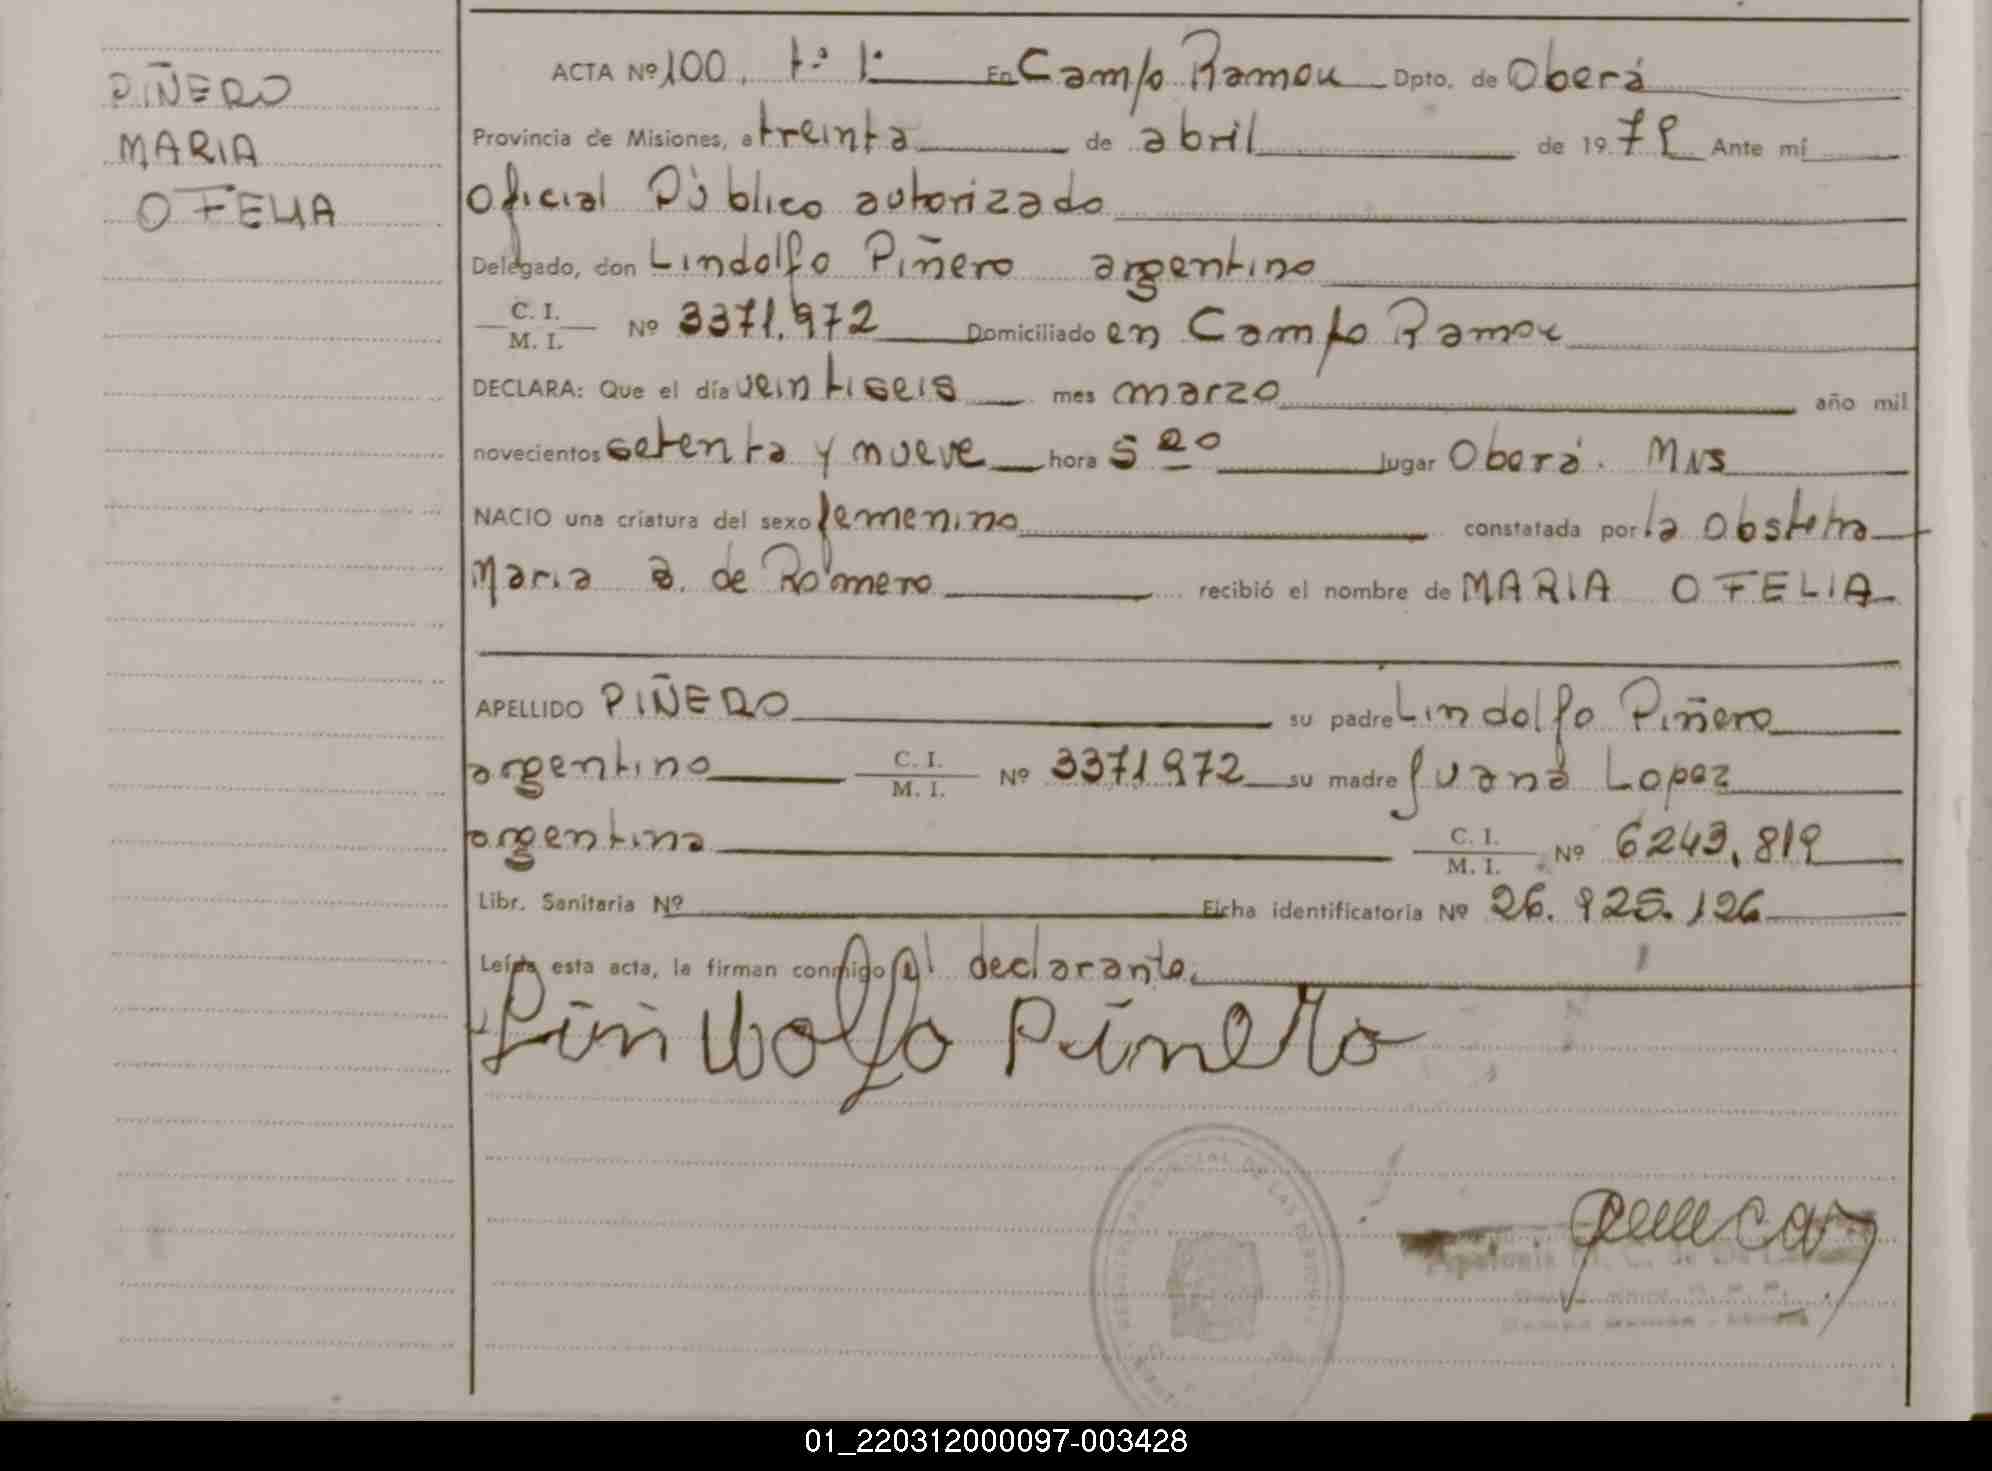 PIÑERO
MARIA
OFELIA
ACTA Nº 100. tº 1º En Campo Ramon Dpto. de Oberá
Provincia de Misiones, a treinta de abril de 1979 Ante mí
Oficial Público autorizado
Delegado, don Lindolfo Piñero argentino
C. I.
M. I. Nº 3371.972 Domiciliado en Campo Ramon
DECLARA: Que el día veintiseis mes marzo año mil
novecientos setenta y nueve hora 5 20 lugar Oberá. Mns
NACIO una criatura del sexo femenino constatada por la obstetra
Maria de Romero recibió el nombre de MARIA OFELIA
APELLIDO PIÑERO su padre Lindolfo Piñero
argentino C. I. M. I. Nº 3371972 su madre Juana Lopez
argentina C. I. M. I. Nº 6243.819
Libr. Sanitaria Nº Ficha identificatoria Nº 26.925.126
Leída esta acta, la firman conmigo el declarante.
Lindolfo Piñero
01_220312000097-003428